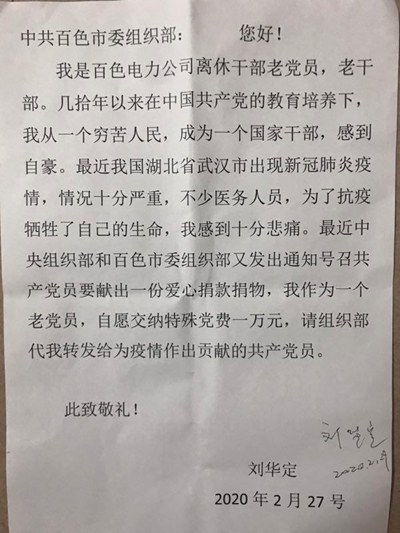 中共百色市委组织部： 您好！
我是百色电力公司离休干部老党员，老干
部。几拾年以来在中国共产党的教育培养下，
我从一个穷苦人民，成为一个国家干部，感到
自豪。最近我国湖北省武汉市出现新冠肺炎疫
情，情况十分严重，不少医务人员，为了抗疫
牺牲了自己的生命，我感到十分悲痛。最近中
央组织部和百色市委组织部又发出通知号召共
产党员要献出一份爱心捐款捐物，我作为一个
老党员，自愿交纳特殊党费一万元，请组织部
代我转发给为疫情作出贡献的共产党员。
此致敬礼！
刘华定
刘华定
2020 年 2 月 27 号